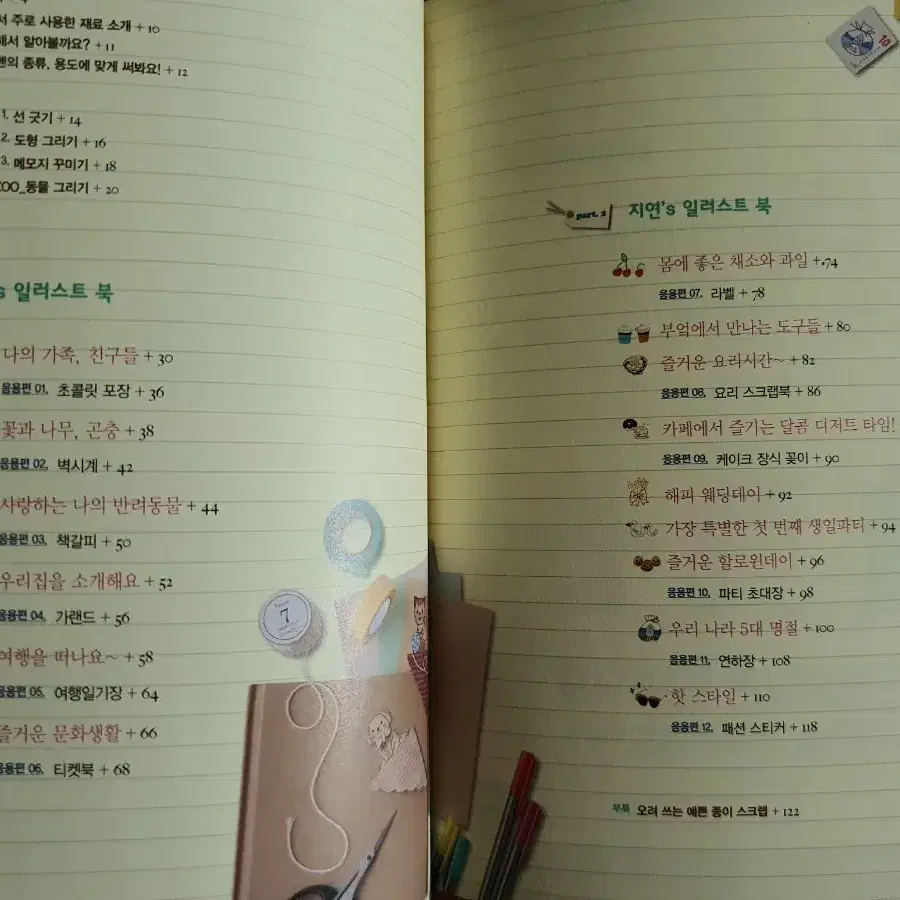 서 주로 사용한 재료 소개 + 10
해서 알아볼까요? + 11
펜의 종류, 용도에 맞게 써봐요! + 12
1. 선 긋기 + 14
2. 도형 그리기 + 16
3. 메모지 꾸미기 + 18
ZOO_동물 그리기 + 20
s 일러스트 북
나의 가족, 친구들 + 30
응용편 01. 초콜릿 포장 + 36
꽃과 나무, 곤충 + 38
응용편 02. 벽시계 + 42
사랑하는 나의 반려동물 + 44
응용편 03. 책갈피 + 50
우리집을 소개해요 + 52
응용편 04. 가랜드 + 56
여행을 떠나요~ + 58
응용편 05. 여행일기장 + 64
즐거운 문화생활 + 66
응용편 06. 티켓북 + 68
7
10
part. 2 지연's 일러스트 북
몸에 좋은 채소와 과일 + 74
응용편 07. 라벨 + 78
부엌에서 만나는 도구들 + 80
즐거운 요리시간~ + 82
응용편 08. 요리 스크랩북 + 86
카페에서 즐기는 달콤 디저트 타임!
응용편 09. 케이크 장식 꽂이 + 90
해피 웨딩데이 + 92
가장 특별한 첫 번째 생일파티 + 94
즐거운 할로윈데이 + 96
응용편 10. 파티 초대장 + 98
우리 나라 5대 명절 + 100
응용편 11. 연하장 + 108
핫 스타일 + 110
응용편 12. 패션 스티커 + 118
부록 오려 쓰는 예쁜 종이 스크랩 + 122